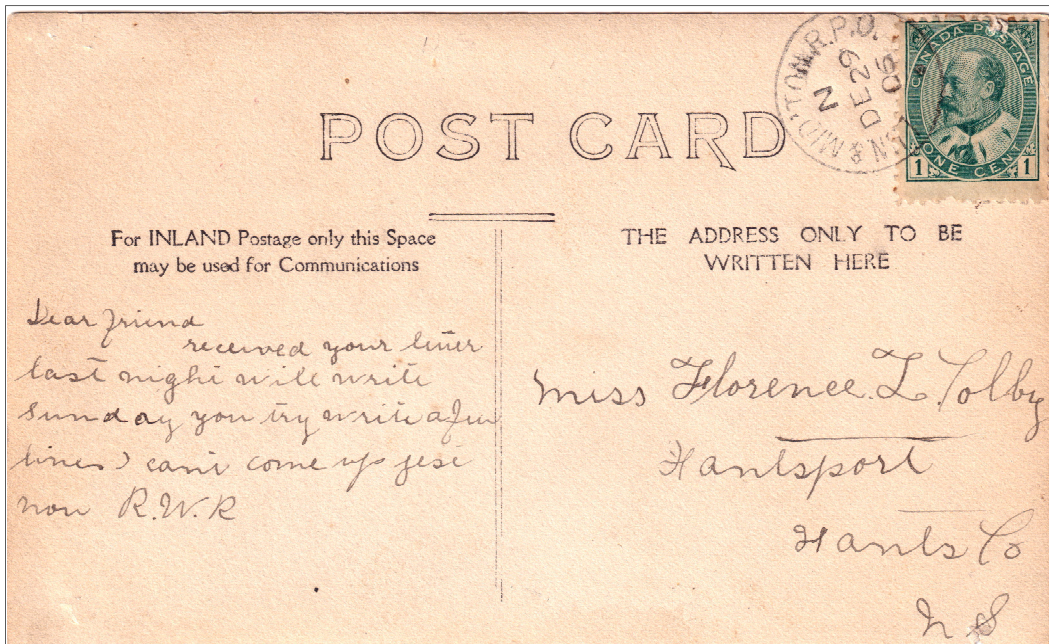 POST CARD
CANADA POSTAGE
ONE CENT
1 1
& MID'TON R.P.O.
N
DE 29
For INLAND Postage only this Space
may be used for Communications
THE ADDRESS ONLY TO BE
WRITTEN HERE
Dear friend
received your letter
last night will write
Sunday you try write a few
lines I cant come up jest
now R.W.R
Miss Florence. L.
Hantsport
Hants Co
N S